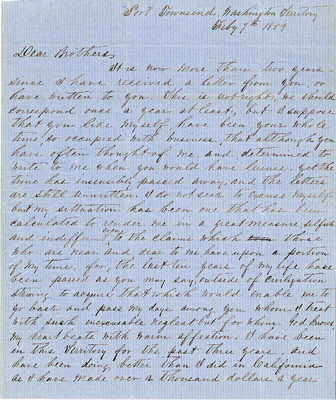 Port Townsend, Washington Territory
Feby 7th 1859
Dear Brothers,
It is now more than two years
since I have received a letter from you or
have written to you. this is not right, we should
correspond once a year at least, but I suppose
that you like myself have been your whole
time, so occupied with business, that although you
have often thought of me, and determined to
write to me when you would have leisure yet the
time has insensibly passed away, and the letters
are still unwritten. I do not seek to excuse myself
but my situation has been one that has been
calculated to render me in a great measure selfish
and indifferent to the claims which those
who are near and dear to me have upon a portion
of my time, for, the last ten years of my life have
been passed as you may say, outside of civilization
striving to acquire that which would enable me to
go back and pass my days among you whom I treat
with such inexcusable neglect but for whom God knows
my heart beats with warm affection. I have been
in this Territory for the past three years, and
have been doing better than I did in California
as I have made over a thousand dollars a year